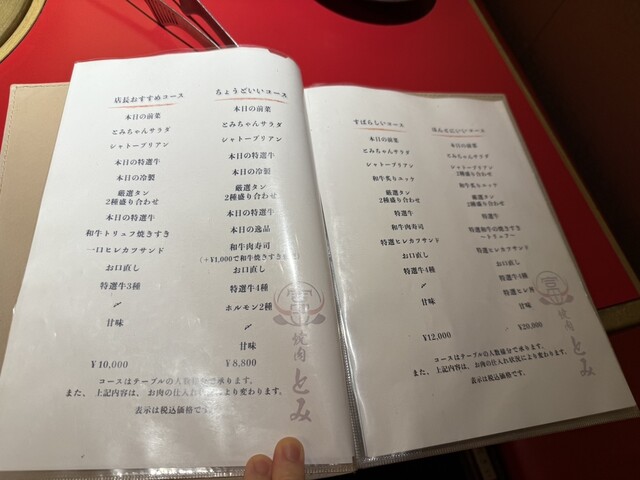 店長おすすめコース
本日の前菜
とみちゃんサラダ
シャトーブリアン
本日の特選牛
本日の冷製
厳選タン
2種盛り合わせ
本日の特選牛
和牛トリュフ焼きすき
一口ヒレカツサンド
お口直し
特選牛3種
〆
甘味
¥10,000
ちょうどいいコース
本日の前菜
とみちゃんサラダ
シャトーブリアン
本日の特選牛
本日の冷製
厳選タン
2種盛り合わせ
本日の特選牛
本日の逸品
和牛肉寿司
(+¥1,000で和牛焼きすき
お口直し
特選牛4種
ホルモン2種
〆
甘味
¥8,800
コースはテーブルの人数様分で承ります。
また、上記内容は、お肉の仕入れ状況により変わります。
表示は税込価格です。
焼肉とみ
すばらしいコース
本日の前菜
とみちゃんサラダ
シャトーブリアン
和牛炙りユッケ
厳選タン
2種盛り合わせ
特選牛
和牛肉寿司
特選ヒレカツサンド
お口直し
特選牛4種
〆
甘味
¥12,000
コース
本日の前菜
とみちゃんサラダ
シャトーブリアン
2種盛り合わせ
和牛炙りユッケ
厳選タン
2種盛り合わせ
特選牛
特選和牛の焼きすき
～トリュフ～
特選ヒレカツサンド
お口直し
特選牛4種
特選ヒレ丼
甘味
¥20,000
コースはテーブルの人数様分で承ります。
また、上記内容は、お肉の仕入れ状況により変わります。
表示は税込価格です。
焼肉とみ